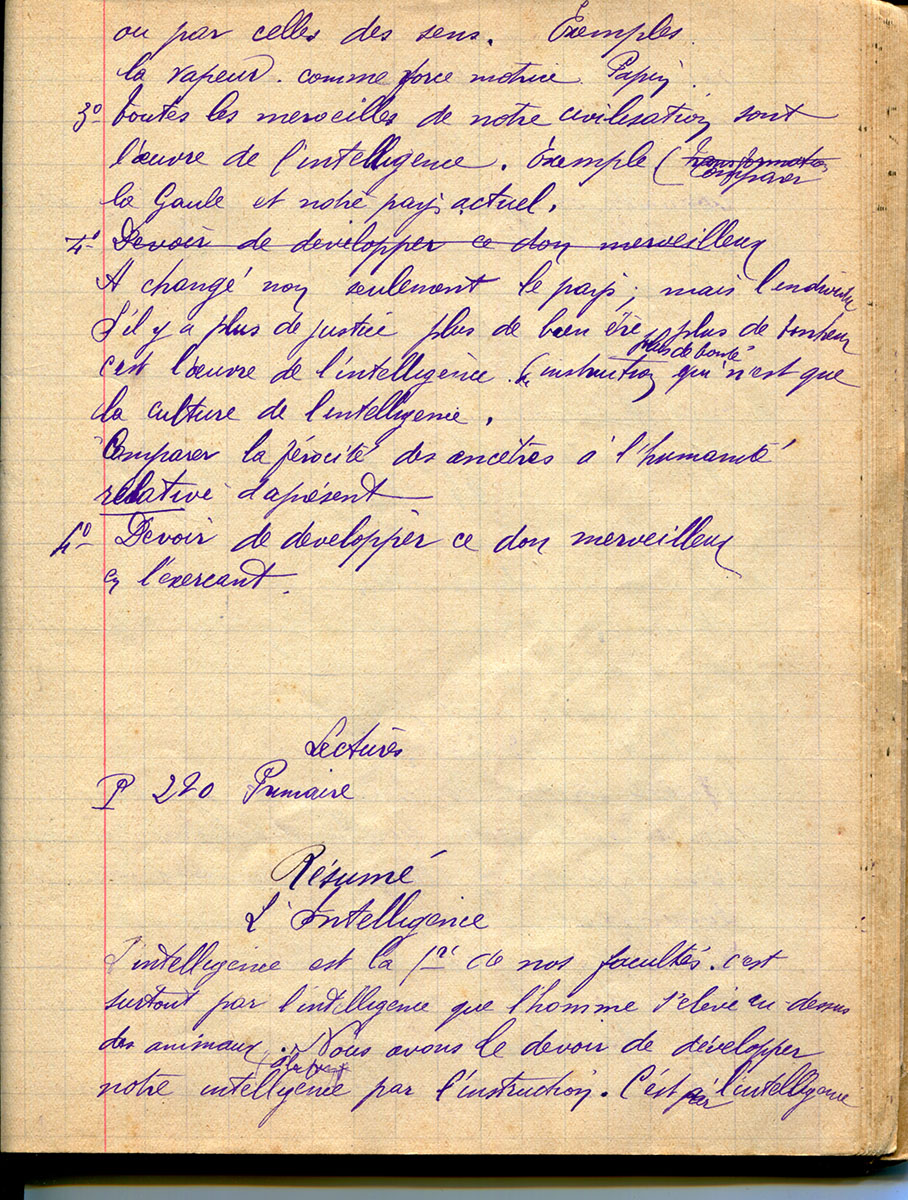 ou par celles des sens. Exemples
la vapeur. comme force motrice. Papin.
3° toutes les merveilles de notre civilisation sont
l'œuvre de l'intelligence. Exemple (transformation comparer
la Gaule et notre pays actuel.
4° Devoir de développer ce don merveilleux
A changé non seulement le pays, mais l'individu
S'il y a plus de justice plus de bien être plus de bonheur
plus de bonté
c'est l'œuvre de l'intelligence. (instruction qui n'est que
la culture de l'intelligence.
Comparer la férocité des ancêtres à l'humanité
relative d'aprésent
4° Devoir de développer ce don merveilleux
en l'exercant.
Lectures
P 220 Primaire
Résumé
L'Intelligence
L'intelligence est la 1re de nos facultés. c'est
surtout par l'intelligence que l'homme s'élève au-dessus
des animaux. Nous avons le devoir de développer
notre intelligence par l'instruction. C'est par l'intelligence